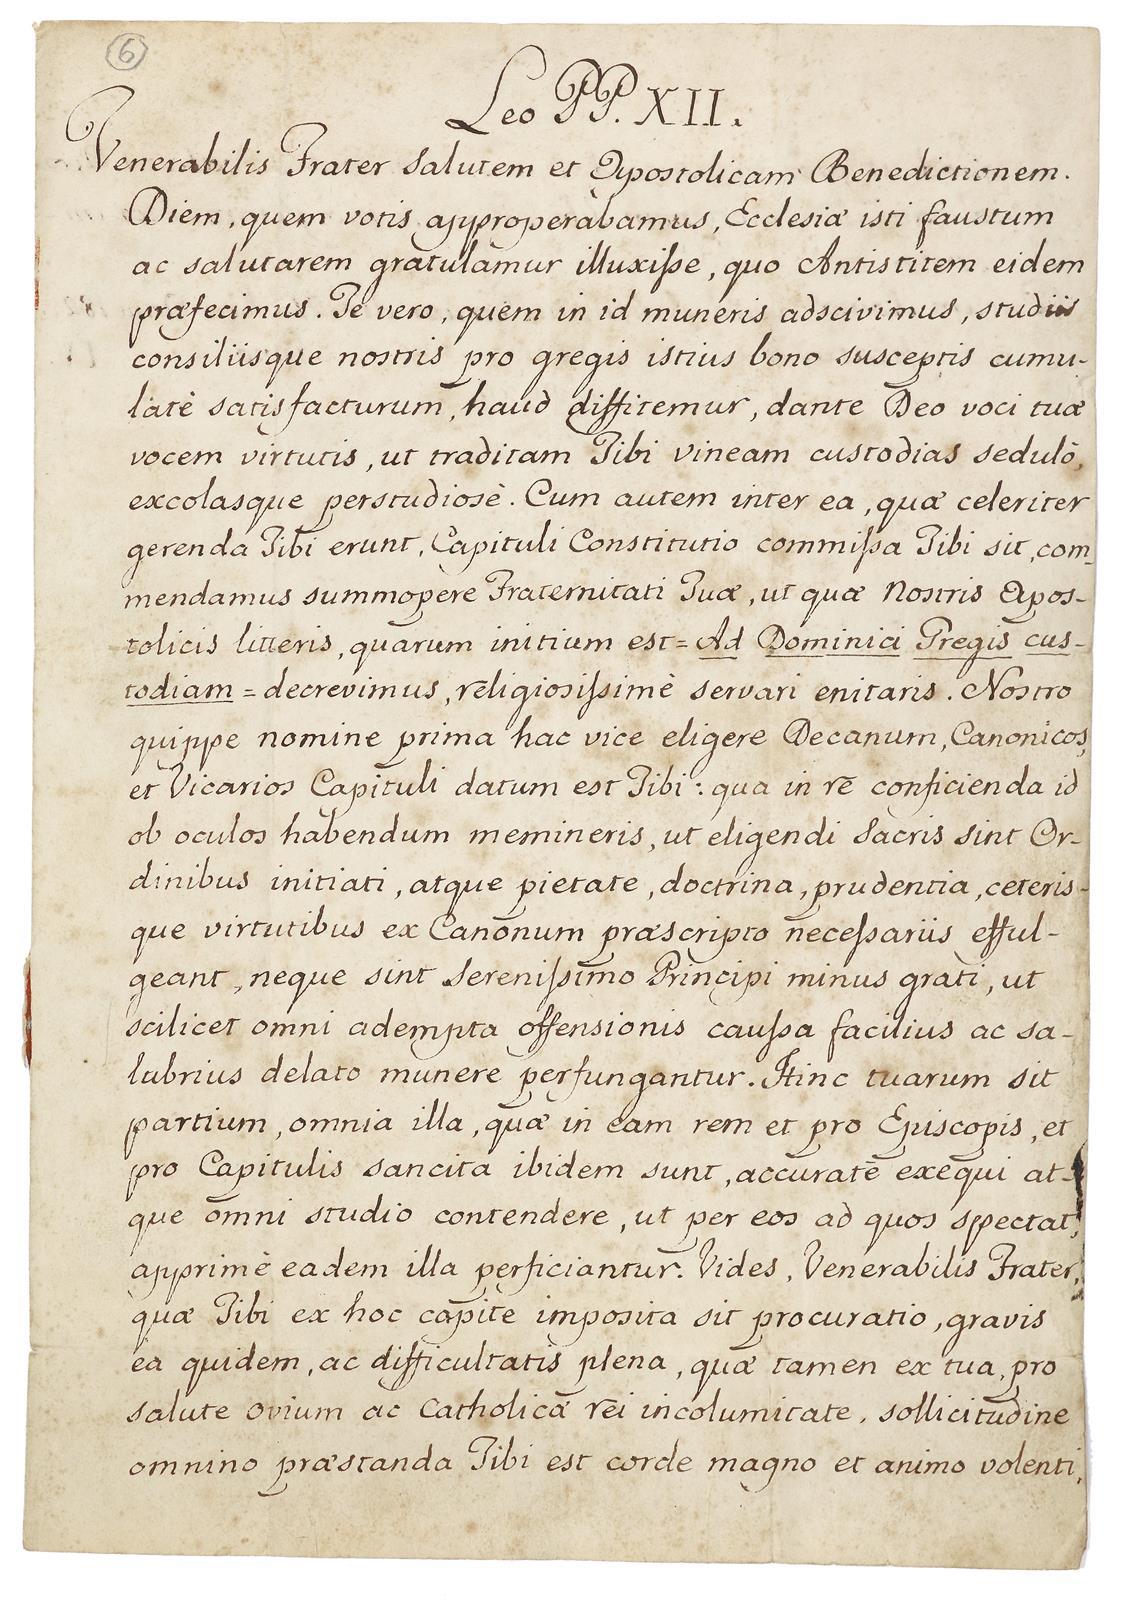 6
Leo PP. XII.
Venerabilis Frater salutem et Apostolicam Benedictionem.
Diem, quem votis approperabamus, Ecclesiæ isti faustum
ac salutarem gratulamur illuxisse, quo Antistitem eidem
præfecimus. Te vero, quem in id muneris adscivimus, studiis
consiliisque nostris pro gregis istius bono susceptis cumu-
latè satisfacturum, haud diffitemur, dante Deo voci tuæ
vocem virtutis, ut traditam Tibi vineam custodias sedulò,
excolasque perstudiosè. Cum autem inter ea, quæ celeriter
gerenda Tibi erunt, Capituli Constitutio commissa Tibi sit, com-
mendamus summopere Fraternitati Tuæ, ut quæ Nostris Apos-
tolicis litteris, quarum initium est = Ad Dominici Gregis cus-
todiam = decrevimus, religiosissimè servari enitaris. Nostro
quippe nomine prima hac vice eligere Decanum, Canonicos,
et Vicarios Capituli datum est Tibi: qua in re conficienda id
ob oculos habendum memineris, ut eligendi Sacris sint Or-
dinibus initiati, atque pietate, doctrina, prudentia, ceteris-
que virtutibus ex Canonum præscripto necessariis efful-
geant, neque sint Serenissimo Principi minus grati, ut
scilicet omni adempta offensionis caussa facilius ac sa-
lubrius delato munere perfungantur. Hinc tuarum sit
partium, omnia illa, quæ in eam rem et pro Episcopis, et
pro Capitulis sancita ibidem sunt, accuratè exequi at-
que omni studio contendere, ut per eos ad quos spectat,
apprimè eadem illa perficiantur. Vides, Venerabilis Frater,
quæ Tibi ex hoc capite imposita sit procuratio, gravis
ea quidem, ac difficultatis plena, quæ tamen ex tua, pro
salute ovium ac Catholicæ rei incolumitate, sollicitudine
omnino præstanda Tibi est corde magno et animo volenti,